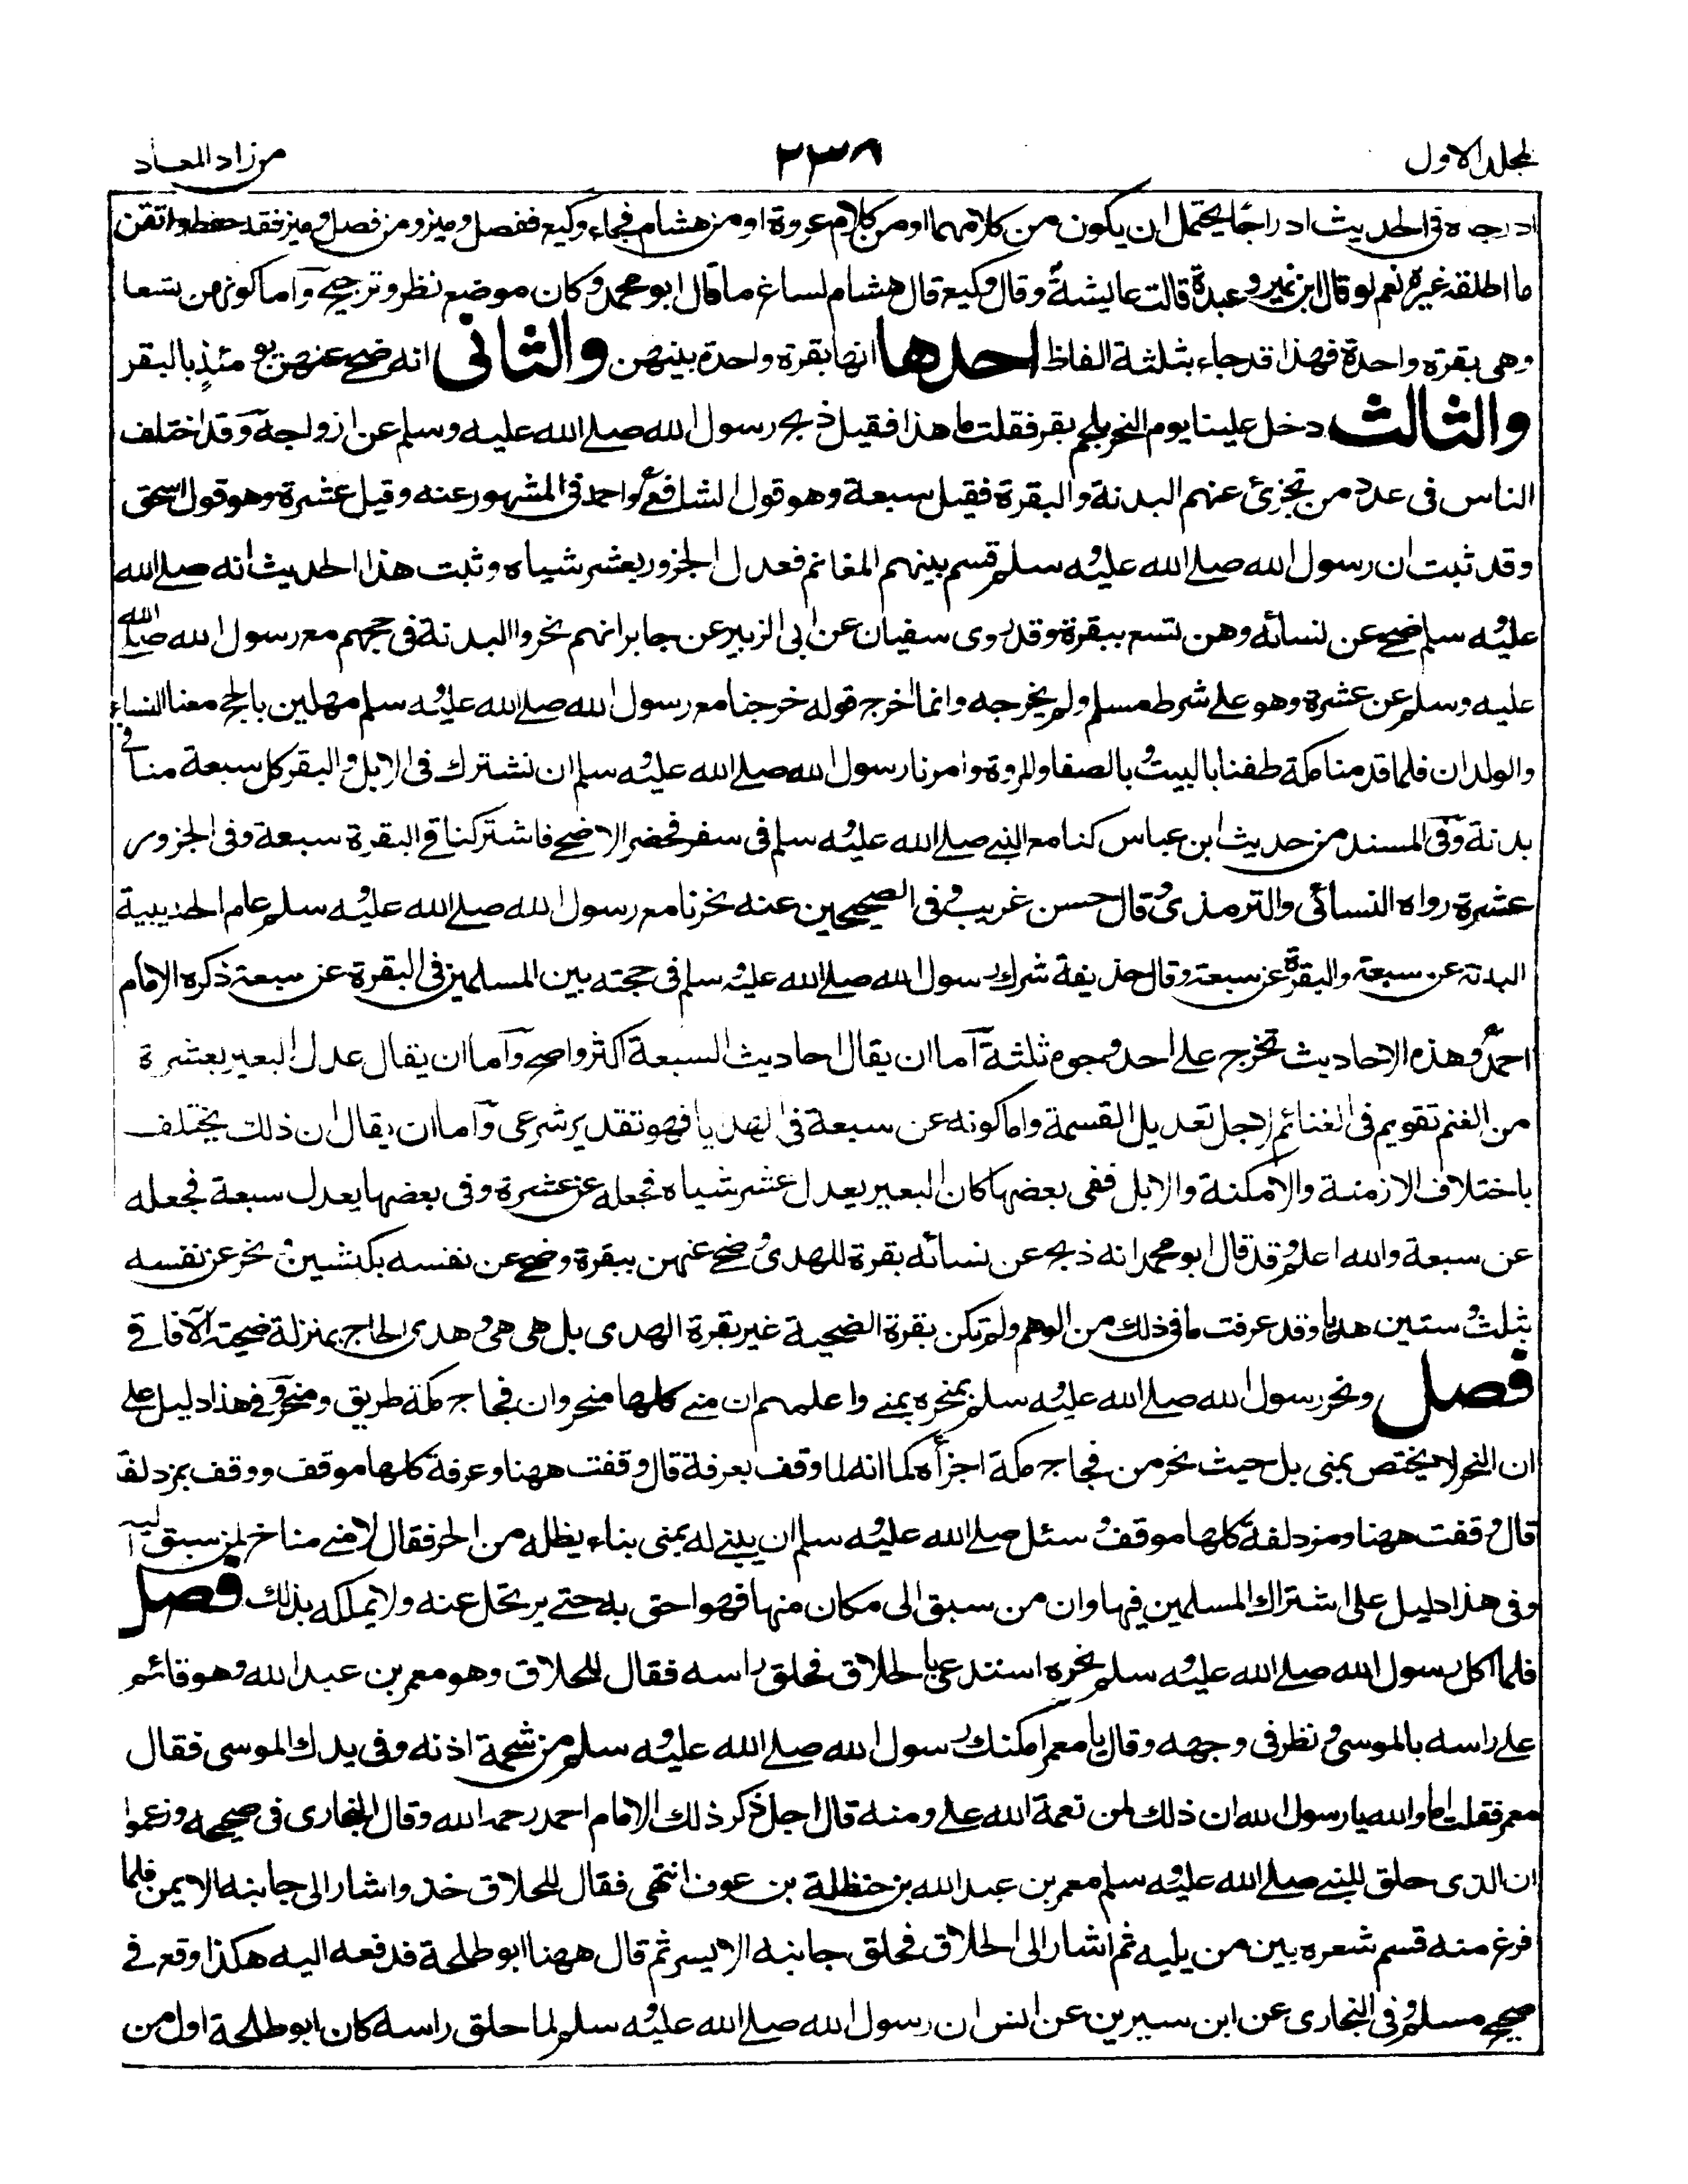 المجلد الاول
٢٣٨
من زاد المعاد
ادرجه في الحديث ادراجا يحتمل ان يكون من كلامهما او من كلام عروة او من هشام فجاء وكيع ففصل وميز ومن فصل وميز فقد حفظ واتقن
ما اطلقه غيره نعم لو قال ابن نمير وعبدة قالت عايشة وقال وكيع قال هشام لساغ ما قال ابو محمد وكان موضع نظر وترجيح واما كونهن تسعا
وهي بقرة واحدة فهذا قد جاء بثلثة الفاظ احدها انها بقرة واحدة بينهن والثاني انه ضحى عنهن يومئذ بالبقر
والثالث دخل علينا يوم النحر بلحم بقر فقلت ما هذا فقيل ذبح رسول الله صلى الله عليه وسلم عن ازواجه وقد اختلف
الناس في عدد من تجزئ عنهم البدنة والبقرة فقيل سبعة وهو قول الشافعي واحمد في المشهور عنه وقيل عشرة وهو قول اسحق
وقد ثبت ان رسول الله صلى الله عليه وسلم قسم بينهم المغانم فعدل الجزور بعشر شياه وثبت هذا الحديث انه صلى الله
عليه وسلم ضحى عن نسائه وهن تسع ببقرة وقد روى سفيان عن ابى الزبير عن جابر انهم نحروا البدنة في حجهم مع رسول الله صلى الله
عليه وسلم عن عشرة وهو على شرط مسلم ولم يخرجه وانما اخرج قوله خرجنا مع رسول الله صلى الله عليه وسلم مهلين بالحج معنا النساء
والولدان فلما قدمنا مكة طفنا بالبيت وبالصفا والمروة وامرنا رسول الله صلى الله عليه وسلم ان نشترك في الابل والبقر كل سبعة منا في
بدنة وفي المسند من حديث ابن عباس كنا مع النبي صلى الله عليه وسلم في سفر فحضر الاضحى فاشتركنا في البقرة سبعة وفي الجزور
عشرة رواه النسائي والترمذي وقال حسن غريب وفي الصحيحين عنه نحرنا مع رسول الله صلى الله عليه وسلم عام الحديبية
البدنة عن سبعة والبقرة عن سبعة وقال حذيفة شرك رسول الله صلى الله عليه وسلم في حجته بين المسلمين في البقرة عن سبعة ذكره الامام
احمد وهذه الاحاديث تخرج على احد وجوه ثلثة اما ان يقال احاديث السبعة اكثر واصح واما ان يقال عدل البعير بعشرة
من الغنم تقويم في الغنائم لاجل تعديل القسمة واما كونه عن سبعة في الهدايا فهو تقدير شرعى واما ان يقال ان ذلك يختلف
باختلاف الازمنة والامكنة والابل ففي بعضها كان البعير يعدل عشر شياه فجعله عن عشرة وفي بعضها يعدل سبعة فجعله
عن سبعة والله اعلم وقد قال ابو محمد انه ذبح عن نسائه بقرة للهدى وضحى عنهن ببقرة وضحى عن نفسه بكبشين ونحر عن نفسه
بثلث وستين هديا وقد عرفت ما في ذلك من الوهم ولم تكن بقرة الضحية غير بقرة الهدى بل هي هي وهدى الحاج بمنزلة ضحية الآفاقي
فصل ونحر رسول الله صلى الله عليه وسلم بمنحره بمنى واعلمهم ان منى كلها منحر وان فجاج مكة طريق ومنحر وفي هذا دليل على
ان النحر لا يختص بمنى بل حيث نحر من فجاج مكة اجزأه كما انه لما وقف بعرفة قال وقفت ههنا وعرفة كلها موقف ووقف بمزدلفة
قال وقفت ههنا ومزدلفة كلها موقف وسئل صلى الله عليه وسلم ان يبنى له بمنى بناء يظله من الحر فقال لا منى مناخ لمن سبق اليه
وفي هذا دليل على اشتراك المسلمين فيها وان من سبق الى مكان منها فهو احق به حتى يرتحل عنه ولا يملكه بذلك فصل
فلما اكمل رسول الله صلى الله عليه وسلم نحره استدعى بالحلاق فحلق راسه فقال للحلاق وهو معمر بن عبد الله وهو قائم
على راسه بالموسى ونظر في وجهه وقال يا معمر امكنك رسول الله صلى الله عليه وسلم من شحمة اذنه وفي يدك الموسى فقال
معمر فقلت اما والله يا رسول الله ان ذلك لمن نعمة الله على ومنه قال اجل ذكر ذلك الامام احمد رحمه الله وقال البخارى في صحيحه وزعموا
ان الذى حلق للنبي صلى الله عليه وسلم معمر بن عبد الله بن حنظلة بن عوف انتهى فقال للحلاق خذ واشار الى جانبه الايمن فلما
فرغ منه قسم شعره بين من يليه ثم اشار الى الحلاق فحلق جانبه الايسر ثم قال ههنا ابو طلحة فدفعه اليه هكذا وقع في
صحيح مسلم وفي البخارى عن ابن سيرين عن انس ان رسول الله صلى الله عليه وسلم لما حلق راسه كان ابو طلحة اول من